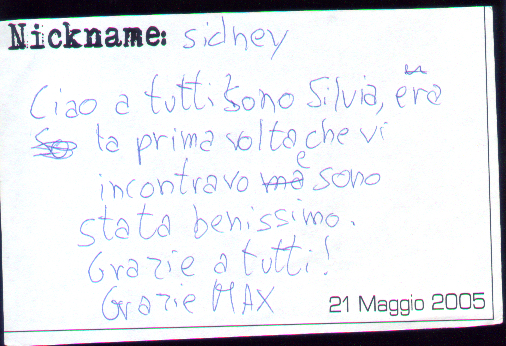 Nickname: sidney
Ciao a tutti sono Silvia, era
la prima volta che vi
incontravo e sono
stata benissimo.
Grazie a tutti!
Grazie MAX
21 Maggio 2005